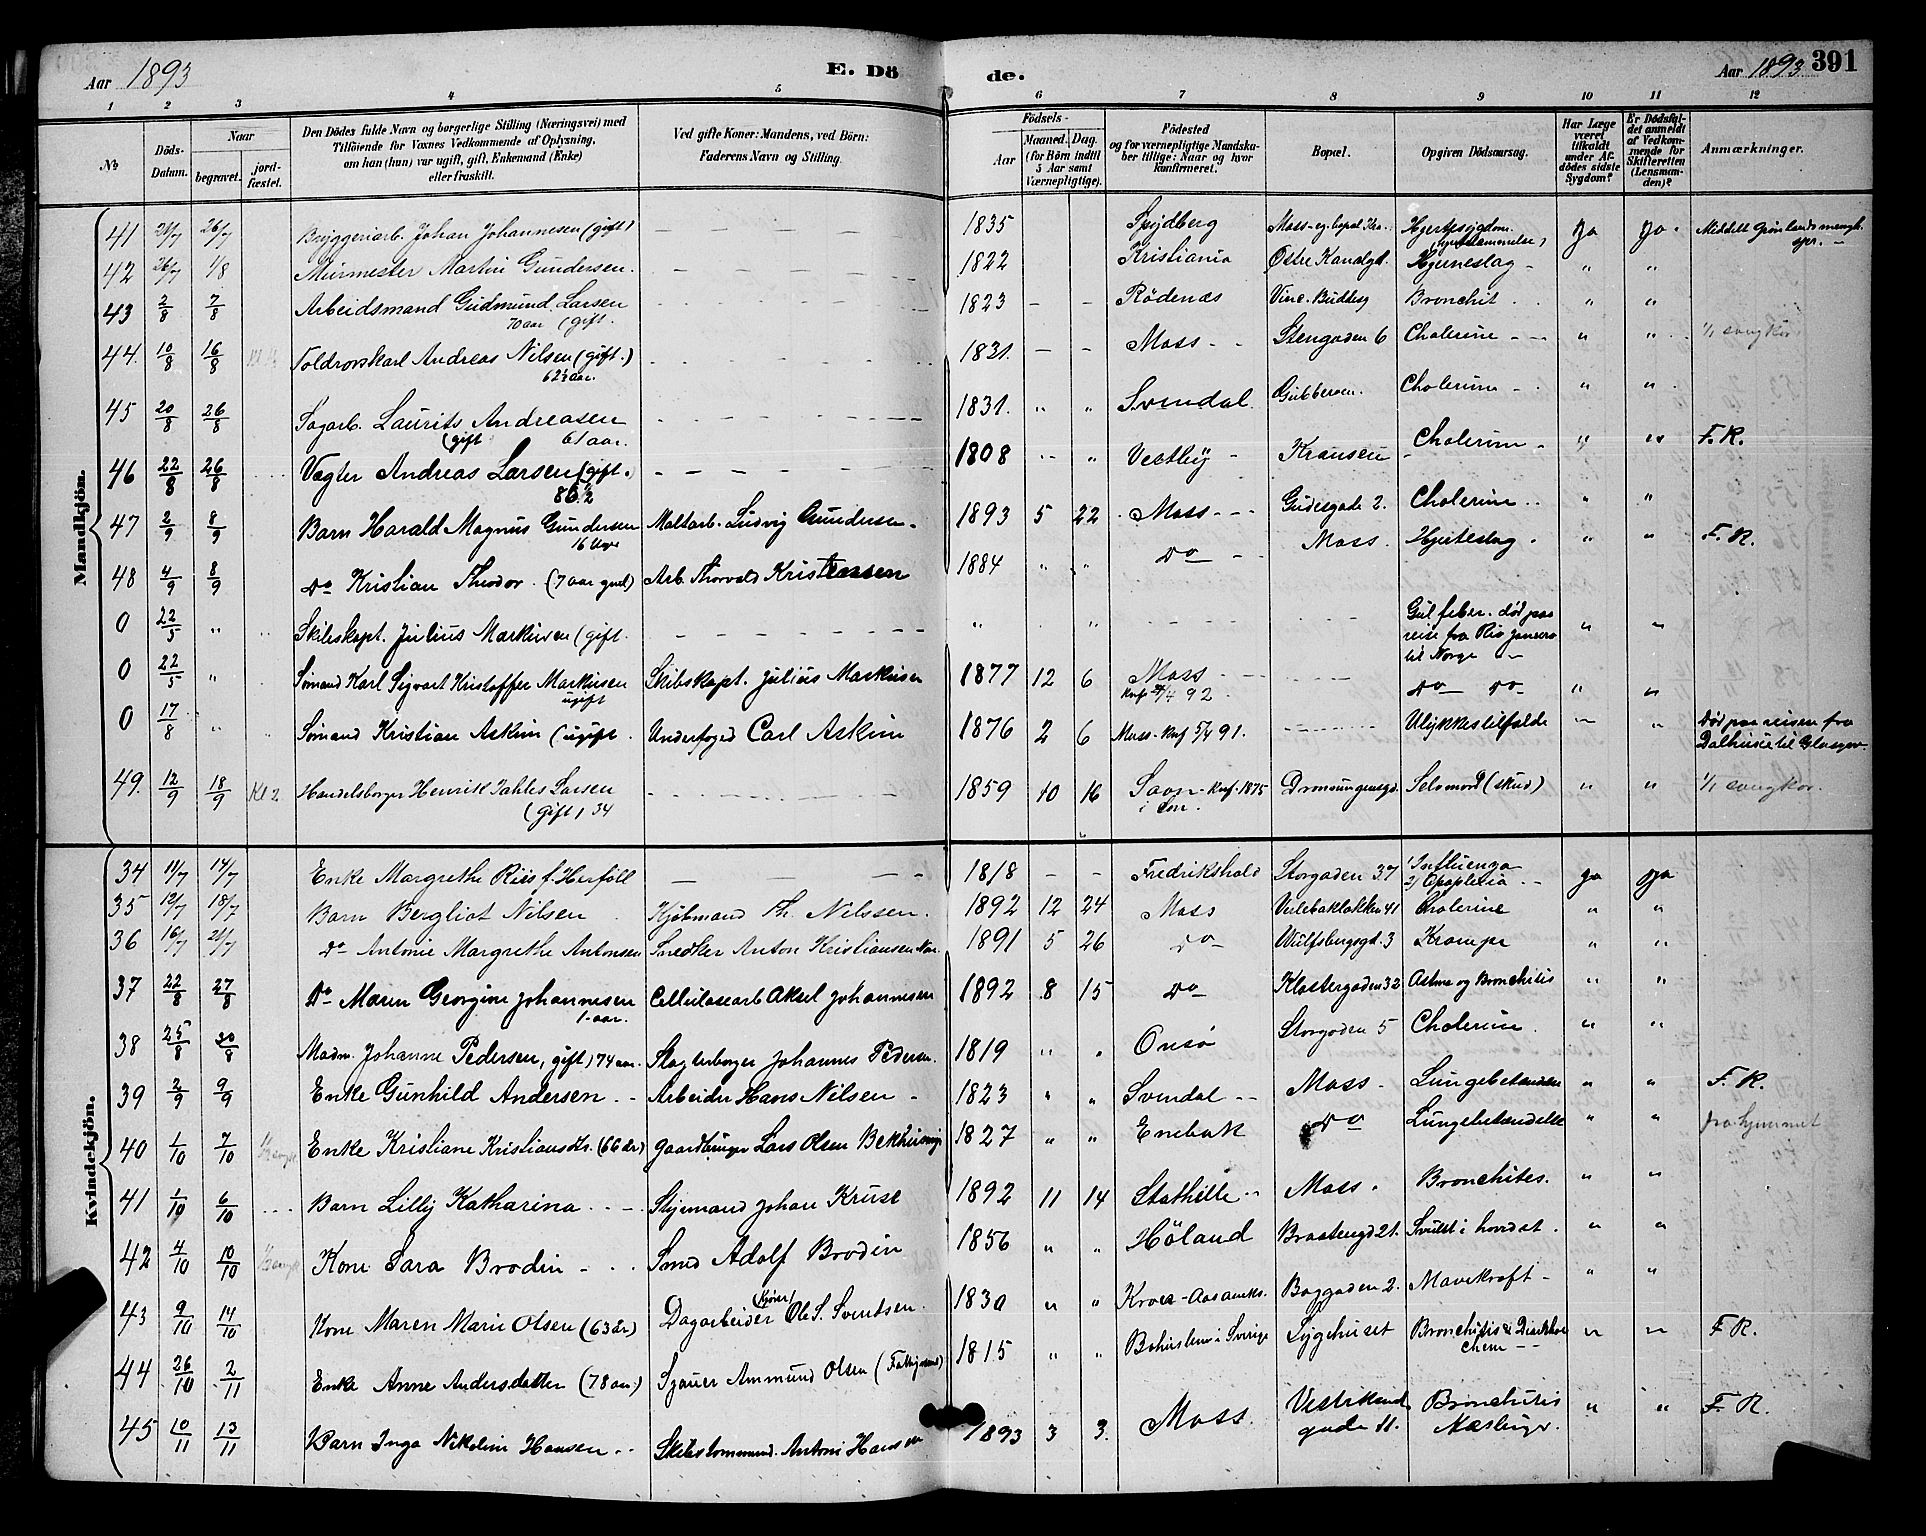 Aar 1893 E. Dö de. Aar 1893 391
1 2 3 4 5 6 7 8 9 10 11 12
№ Döds-Datum. Naar begravet. jordfæstet. Den Dödes fulde Navn og borgerlige Stilling (Næringsvei) med Tilföiende for Voxnes Vedkommende af Oplysning, om han (hun) var ugift, gift, Enkemand (Enke) eller fraskilt. Ved gifte Koner: Mandens, ved Børn: Faderens Navn og Stilling. Födsels- Aar Maaned. Dag. (for Börn indtil 5 Aar samt Værnepligtige). Födested og for værnepligtige Mandskaber tillige: Naar og hvor konfirmeret. Bopæl. Opgiven Dödsaarsag. Har Læge været tilkaldt under Afdödes sidste Sygdom? Er Dödsfaldet anmeldt af Vedkommende for Skifteretten (Lensmanden)? Anmærkninger.
Mandkjön.
41 21/7 26/7 Bryggeriarb. Johan Johannesen (gift) 1835 Spydberg Ja Ja
42 26/7 1/8 Murmester Martin Gundersen. 1822 Kristiania Østre Kanalgd. Hjerneslag " "
43 2/8 7/8 Arbeidsmand Gudmund Larsen 1823 Rödenæs Bronchit " "
70 aar (gift.
44. 10/8 16/8 Andreas Nilsen (gift.) 1831. Moss Stengaden 6 Cholerine " "
62½ aar.
45 20/8 26/8 Sagarb. Laurits Andreasen 1831. " " Svendal Cholerine " "
(gift 61 aar.
46 22/8 26/8 Vægter Andreas Larsen (gift.) 1808 " " Vestby Kransen Cholerine " " F.R.
47 2/9 8/9 Barn Harald Magnus Gundersen Maltarb. Ludvig Gundersen 1893 5 22 Moss Gudesgade 2. Cholerine " "
16 Uger
48 4/9 8/9 Do Kristian Theodor (7 aar gml) Arb. Thorvald Kristiansen 1884 " " Do Moss. Hjerteslag " " F.R.
0 22/5 " Skibskapt. Julius Markusen (gift. " " Gul feber. død paa reise fra Rio Janeiro til Norge " "
0 22/5 " Sømand Karl Sigvart Kristoffer Markusen Skibskapt. Julius Markusen 1877 12 6 Moss Do Do " "
ugift
0 17/8 " Sømand Kristian Askim (ugift. Underfoged Carl Askim 1876 2 6 Moss Knf 5/4 91. Ulykkestilfælde " Død paa reisen fra Dalhusie til Glasgow
49. 12/9 18/9 Kl 2 Handelsborger Henrik Larsen 1859 10 16 Knf. 1875 Dronningensgd. Selvmord (skud) " "
(gift) 34
Kvindekjön.
34 11/7 14/7 Enke Margrethe Riis f. Herföll 1818 Fredrikshald Storgaden 37 1/ Influenza 2/ Apoplexia Ja Ja
35 12/7 18/7 Barn Bergliot Nilsen Kjöbmand Th. Nilssen. 1892 12 24 Moss Verlebakløkken 41 Cholerine " "
36 16/7 21/7 Do Antonie Margrethe Antonsen Snedker Anton Kristiansen 1891 5 26 Do Wulfsbergsgd. 3 Krampe " "
37 22/8 27/8 Do Maren Georgine Johannesen Cellulosearb Aksel Johannesen 1892 8 15 Do Klostergaden 32 Astma og Bronchitis " "
1 aar.
38 25/8 30/8 Madm. Johanne Pedersen, gift) 74 aar. Slagterborger Johannes Pedersen. 1819 " " Onsø Storgaden 5 Cholerine. " "
39 2/9 9/9 Enke Gunhild Andersen Arbeider Hans Nilsen 1823 " " Svendal Moss. Lungebetændelse " " F.R.
40 1/10 7/10 Enke Kristiane Kristiansdtr. (66 år) Gaardbruger Lars Olsen 1827 " " Enebak Do Lungebetændelse " " fra hjemmet
41 1/10 6/10 Barn Lilly Katharina Styrmand Johan Kruse 1892 11 14 Stathelle Moss. Bronchites. " "
42 4/10 10/10 Kone Sara Brodin Smed Adolf Brodin 1856 " " Höland Braatengd 21. Svulst i hovedet. " "
43 9/10 14/10 Kone Maren Marie Olsen (63 år) Dagarbeider Ole S. Svendsen. 1830 " " Kroer - Aas Baggaden 2. Mavekræft " "
44 26/10 2/11 Enke Anne Andersdatter (78 aar) Sjauer Ammund Olsen 1815 " " Bahuslen i Sverige Sygehuset Bronchitis " " F.R.
45 10/11 13/11 Barn Inga Nikoline Hansen Antoni Hansen 1893 3 3. Moss. gade 11. Bronchitis " " F.R.